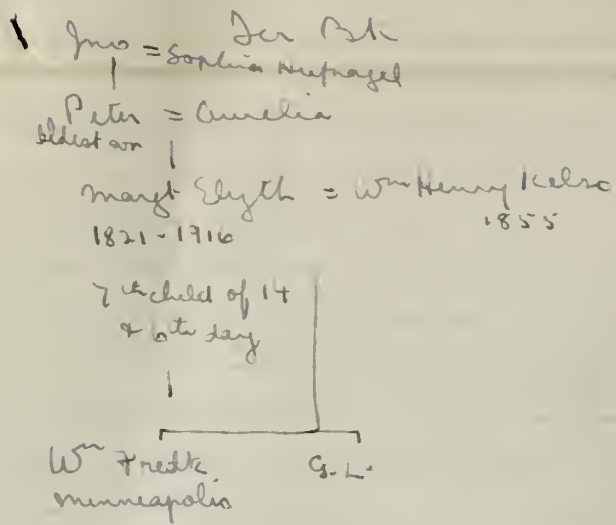 Jno = Sophia Hufnagel
Peter = Amelia
Eldest son
Margt Elizth = Wm Henry Kelso
1821-1916
1855
7th child of 14
& 6th day
Wm Fredk
G. L.
Minneapolis